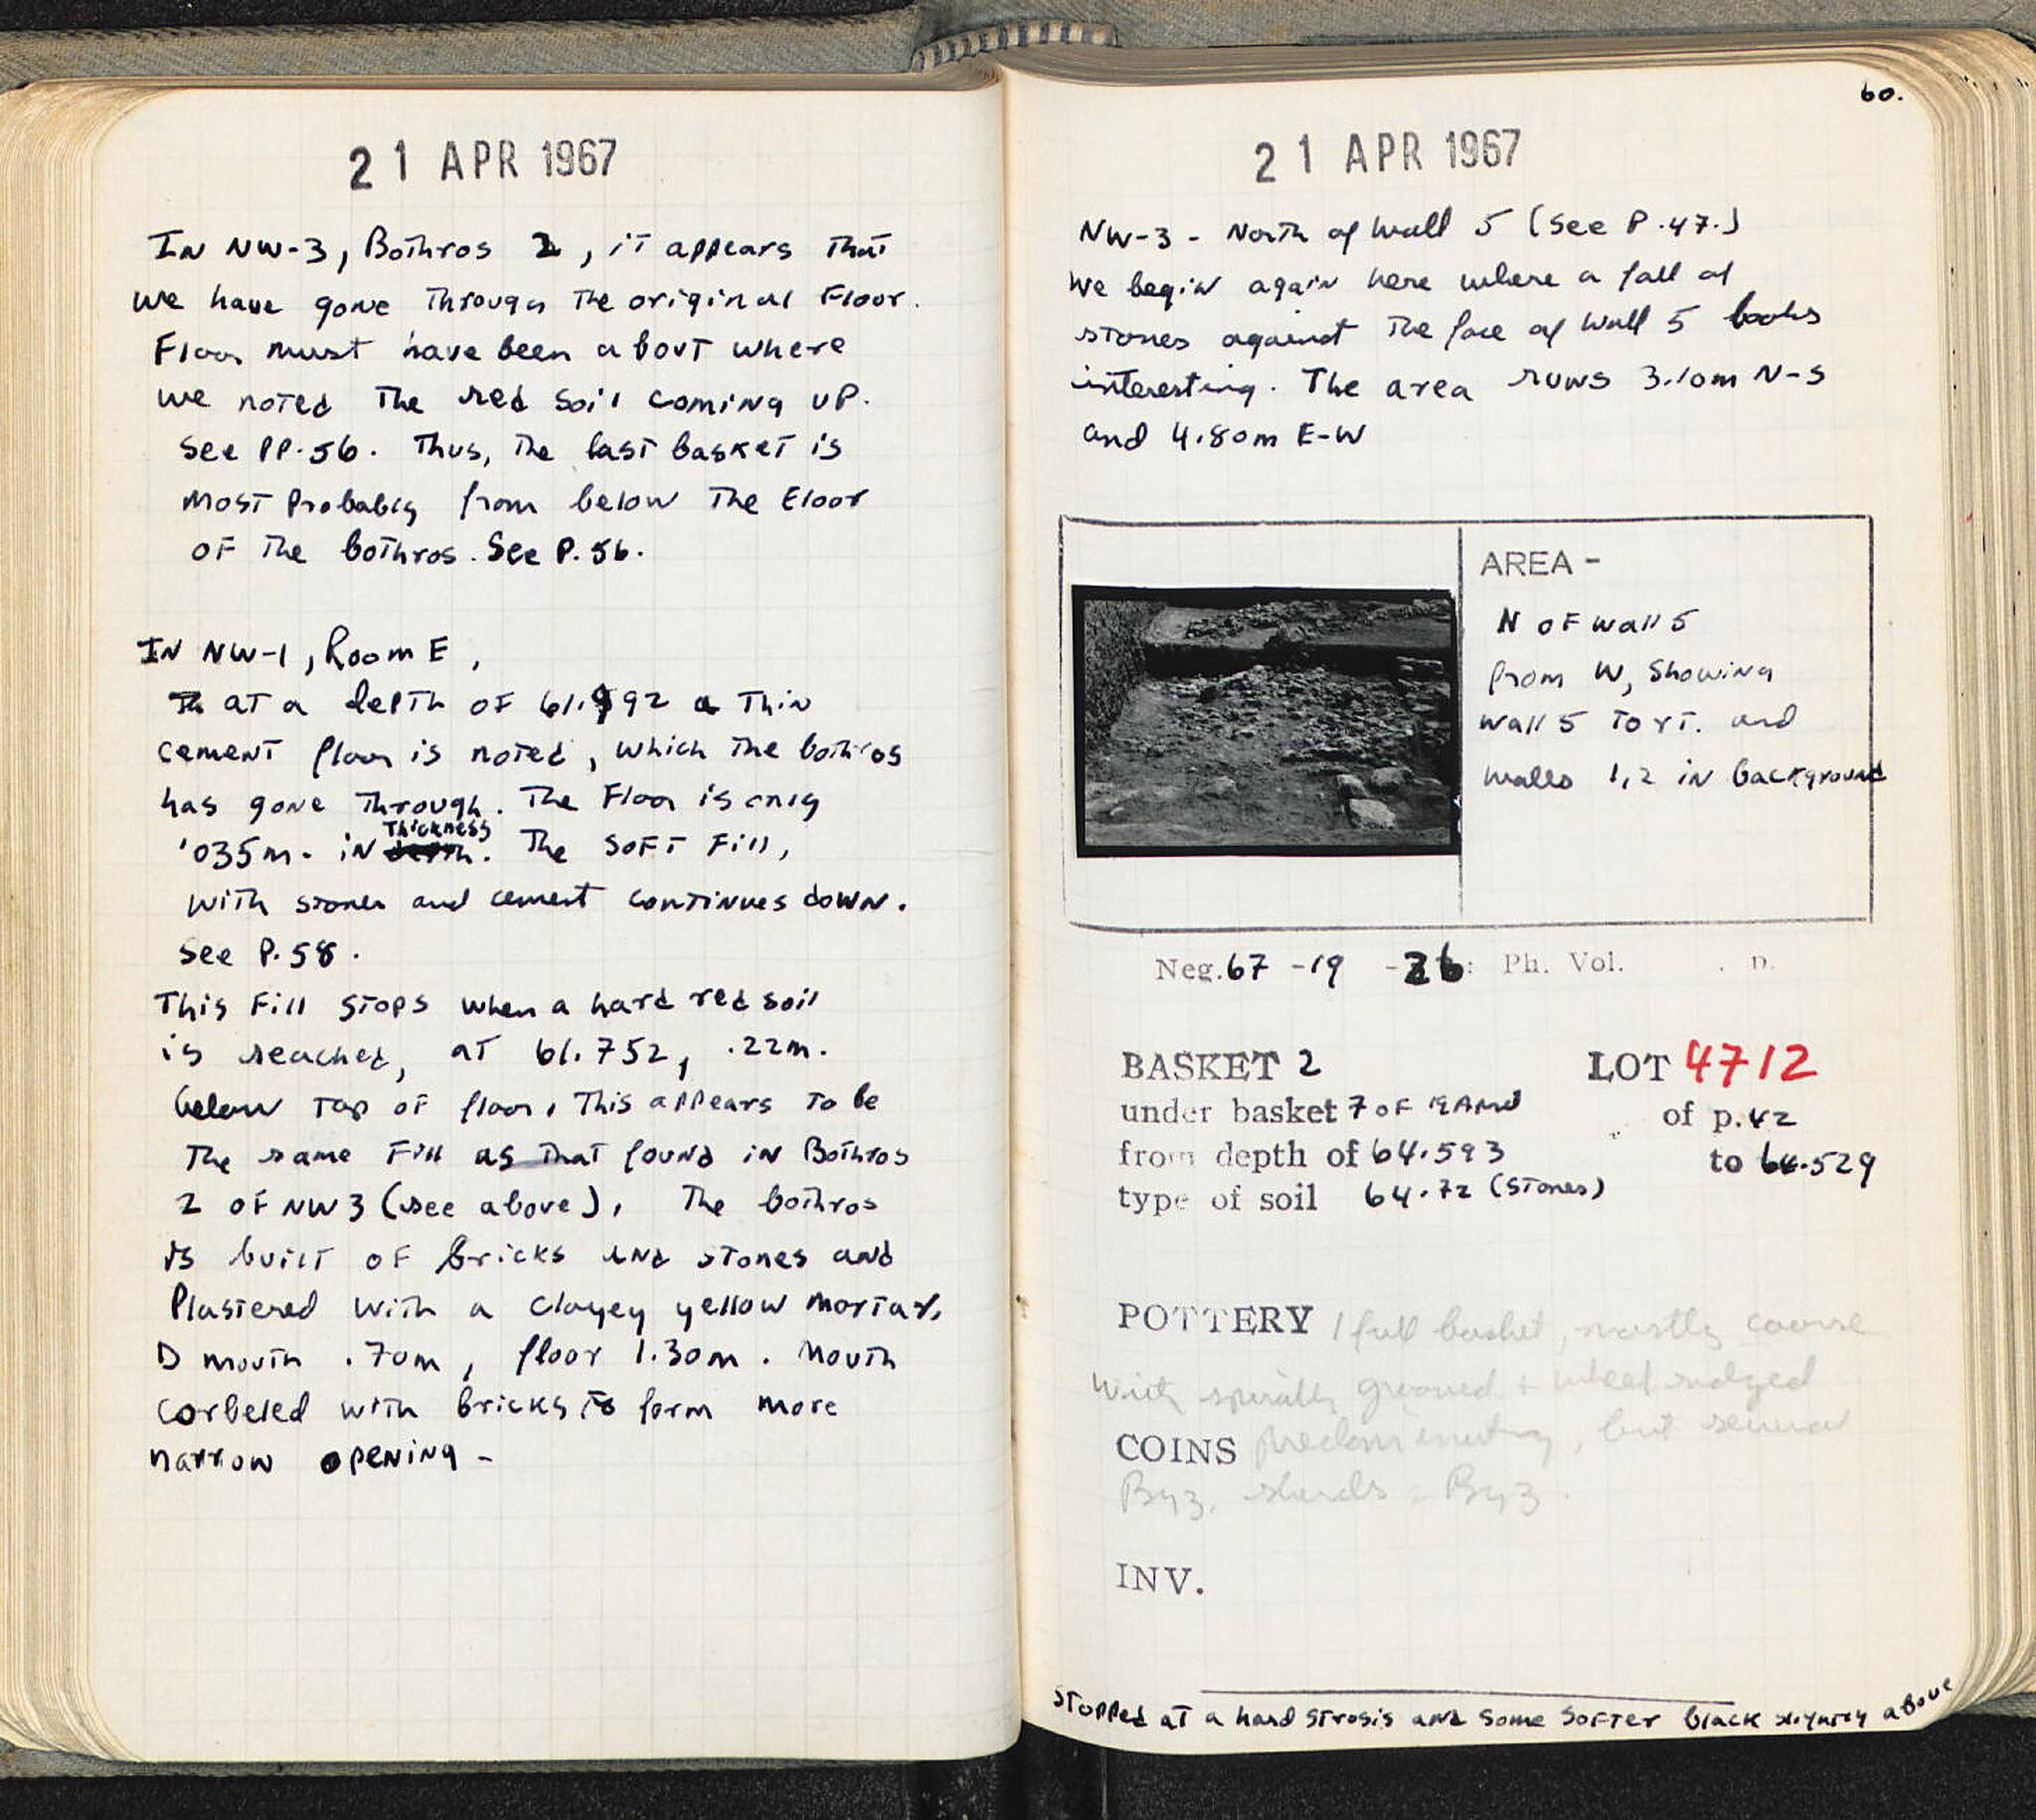 21 APR 1967
IN NW-3, Bothros 2, it appears that
we have gone through the original Floor.
Floor must have been about where
we noted the red soil coming up.
See PP.56. Thus, the last basket is
most Probably from below the Floor
OF the bothros. See P.56.
IN NW-1, Room E,
at a depth OF 61.992 a thin
cement floor is noted, which the bothros
has gone through. The Floor is only
Thickness
'035m. in depth. The soft Fill,
with stones and cement continues down.
See P.58.
This Fill stops when a hard red soil
is reached, at 61.752, .22m.
below top of floor. This appears to be
the same Fill as that found in Bothros
2 OF NW3 (see above). The bothros
is built of bricks and stones and
Plastered with a clayey yellow mortar.
D mouth .70m, floor 1.30m. Mouth
corbeled with bricks to form more
narrow opening -
60.
21 APR 1967
NW-3 - North of Wall 5 (See P.47.)
We begin again here where a fall of
stones against the face of Wall 5 looks
interesting. The area runs 3.10m N-S
and 4.80m E-W
AREA -
N OF Wall 5
from W, showing
Wall 5 to rt. and
Walls 1,2 in background
Neg. 67 -19 -26: Ph. Vol. . p.
BASKET 2 LOT 4712
under basket 7 OF of p.42
from depth of 64.593 to 64.529
type of soil 64.72 (Stones)
POTTERY 1 full basket, mostly coarse
with spirally grooved + wheel ridged
COINS predominating, but several
Byz. sherds - Byz.
INV.
Stopped at a hard strosis and some softer black above